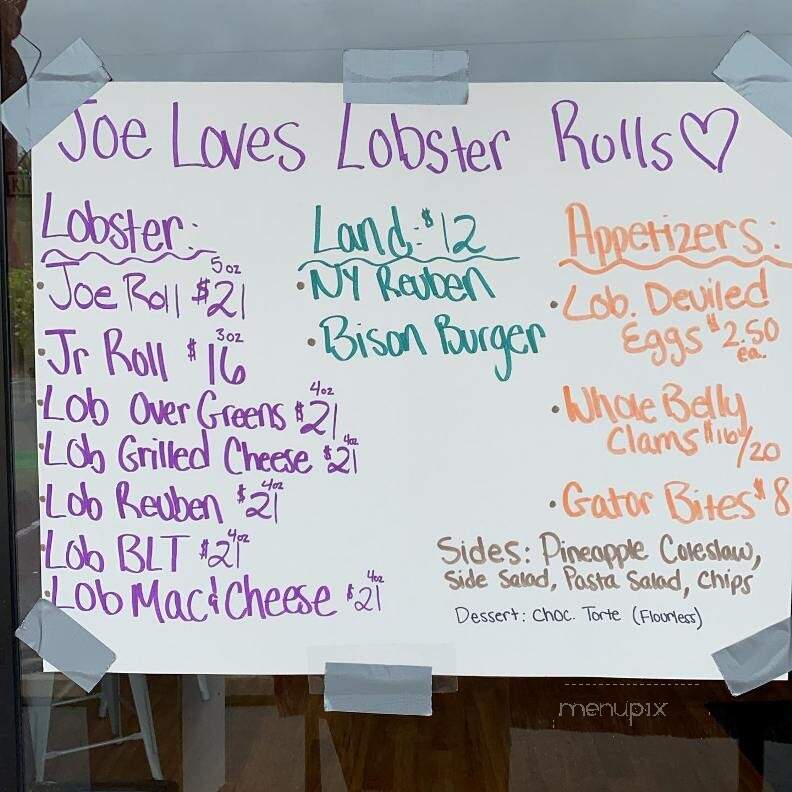 Joe Loves Lobster Rolls♡
Lobster:
• Joe Roll 5oz $21
• Jr Roll 3oz $16
• Lob Over Greens 4oz $21
• Lob Grilled Cheese 4oz $21
• Lob Reuben 4oz $21
• Lob BLT 4oz $21
• Lob Mac & Cheese 4oz $21
Land: $12
• NY Reuben
• Bison Burger
Appetizers:
• Lob. Deviled
Eggs $2.50
ea.
• Whole Belly
Clams $16/20
• Gator Bites $8
Sides: Pineapple Coleslaw,
Side Salad, Pasta Salad, Chips
Dessert: Choc. Torte (Flourless)
menupix